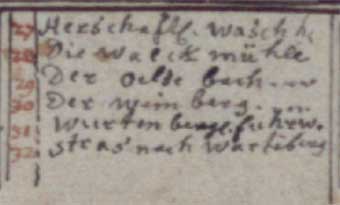 27 Herschaftl. wasch h.
28 Die walck mühle
29 Der oelde bach
30 Der wein berg.
31 Wurten bergl. fuhrw.
32 stras nach Wartzberg